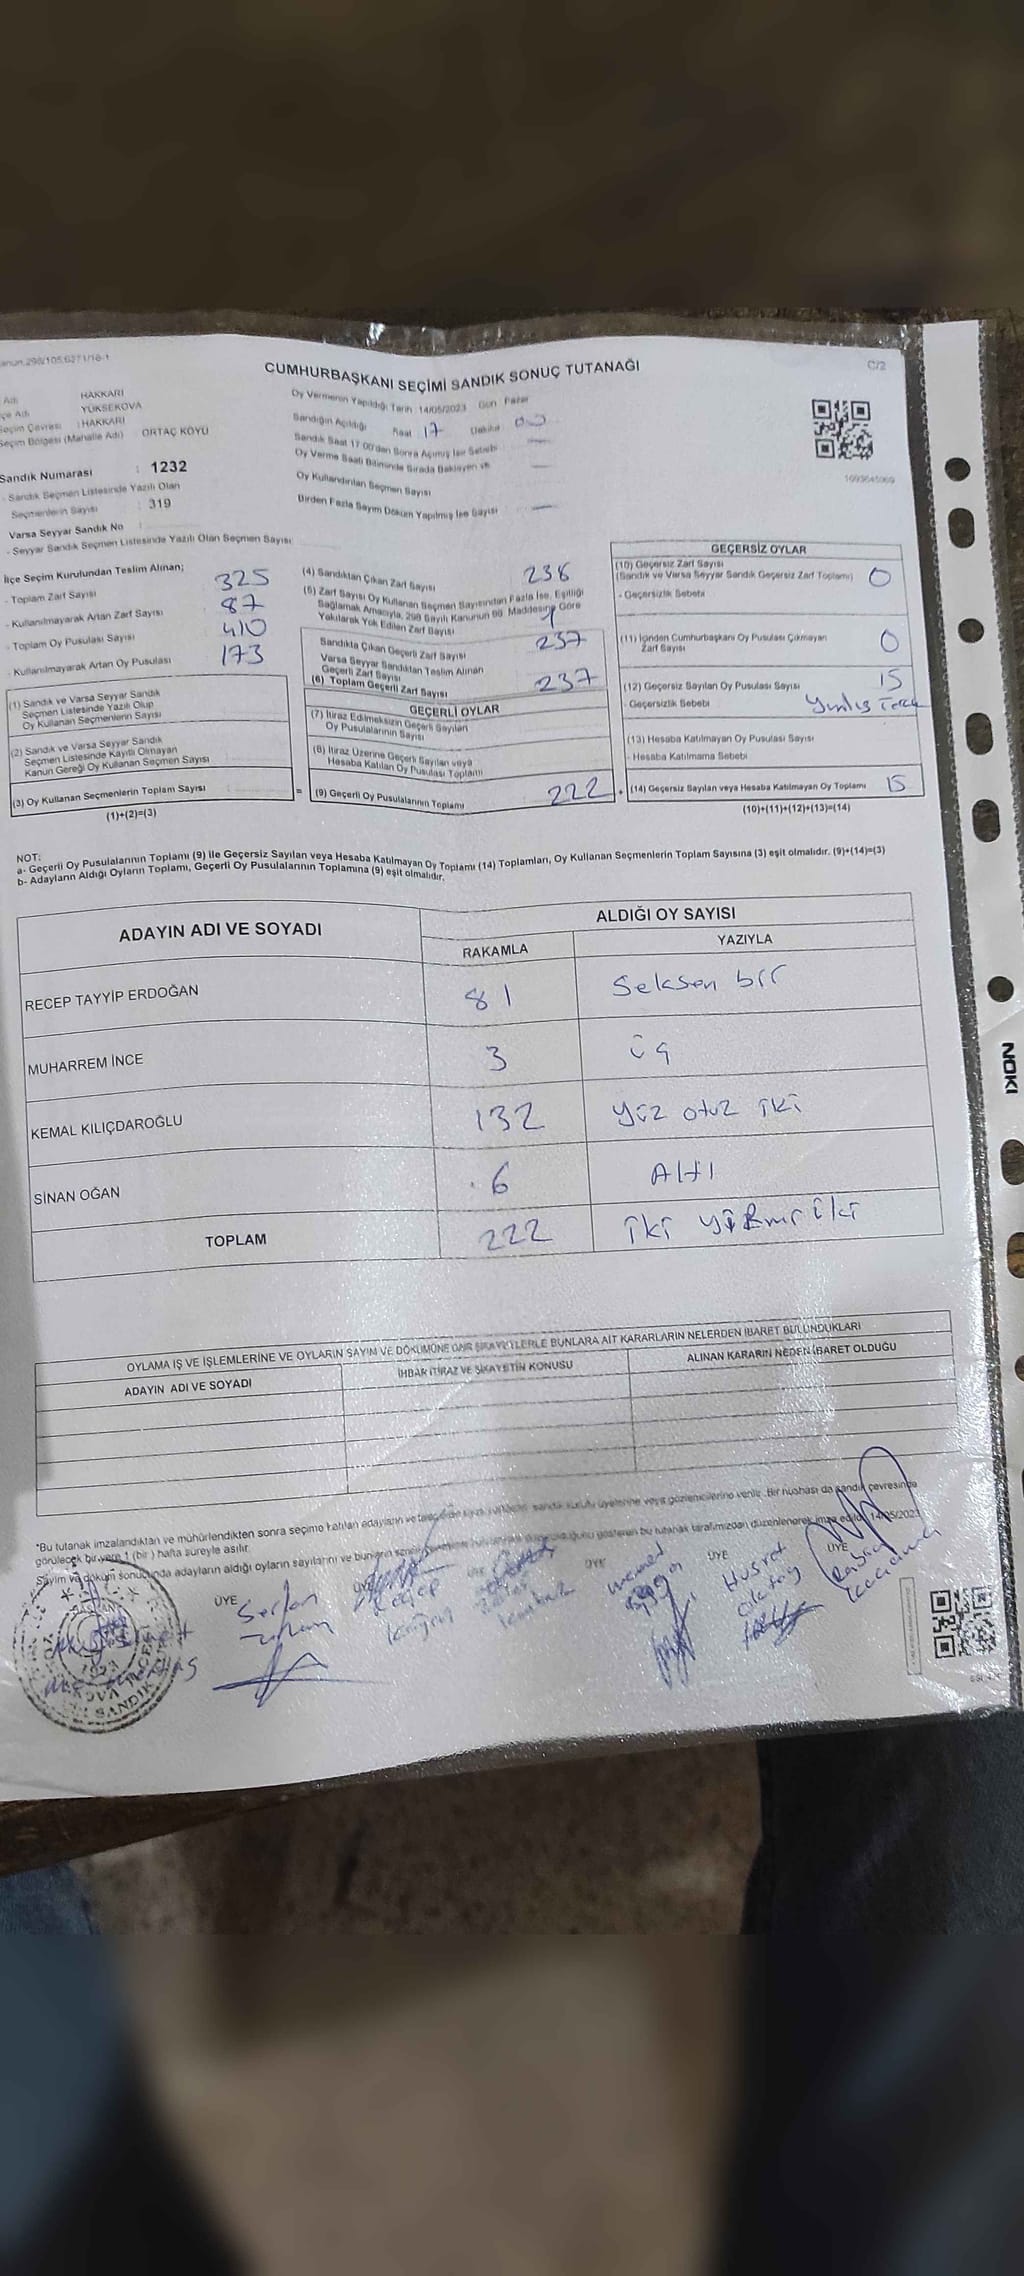 CUMHURBAŞKANI SEÇİMİ SANDIK SONUÇ TUTANAĞI
C/2
HAKKARI
YÜKSEKOVA
Seçim Çevresi : HAKKARI
Seçim Bölgesi (Mahalle Adı) : ORTAÇ KÖYÜ
Sandık Numarası : 1232
- Sandık Seçmen Listesinde Yazılı Olan
Seçmenlerin Sayısı : 319
Varsa Seyyar Sandık No :
- Seyyar Sandık Seçmen Listesinde Yazılı Olan Seçmen Sayısı:
Oy Vermenin Yapıldığı Tarih : 14/05/2023 Gün : Pazar
Sandığın Açıldığı Saat 17 Dakika 00
Sandık Saat 17:00'dan Sonra Açılmış İse Sebebi
Oy Verme Saati Bitiminde Sırada Bekleyen ve
Oy Kullandırılan Seçmen Sayısı
Birden Fazla Sayım Döküm Yapılmış İse Sayısı
İlçe Seçim Kurulundan Teslim Alınan;
- Toplam Zarf Sayısı 325
- Kullanılmayarak Artan Zarf Sayısı 87
- Toplam Oy Pusulası Sayısı 410
- Kullanılmayarak Artan Oy Pusulası 173
(1) Sandık ve Varsa Seyyar Sandık
Seçmen Listesinde Yazılı Olup
Oy Kullanan Seçmenlerin Sayısı
(2) Sandık ve Varsa Seyyar Sandık
Seçmen Listesinde Kayıtlı Olmayan
Kanun Gereği Oy Kullanan Seçmen Sayısı
(3) Oy Kullanan Seçmenlerin Toplam Sayısı
(1)+(2)=(3)
(4) Sandıktan Çıkan Zarf Sayısı 238
(5) Zarf Sayısı Oy Kullanan Seçmen Sayısından Fazla İse, Eşitliği
Sağlamak Amacıyla, 298 Sayılı Kanunun 98. Maddesine Göre
Yakılarak Yok Edilen Zarf Sayısı 1
Sandıkta Çıkan Geçerli Zarf Sayısı 237
Varsa Seyyar Sandıktan Teslim Alınan
Geçerli Zarf Sayısı
(6) Toplam Geçerli Zarf Sayısı 237
GEÇERLİ OYLAR
(7) İtiraz Edilmeksizin Geçerli Sayılan
Oy Pusulalarının Sayısı
(8) İtiraz Üzerine Geçerli Sayılan veya
Hesaba Katılan Oy Pusulası Toplamı
= (9) Geçerli Oy Pusulalarının Toplamı 222 +
GEÇERSİZ OYLAR
(10) Geçersiz Zarf Sayısı
(Sandık ve Varsa Seyyar Sandık Geçersiz Zarf Toplamı) 0
- Geçersizlik Sebebi
(11) İçinden Cumhurbaşkanı Oy Pusulası Çıkmayan
Zarf Sayısı 0
(12) Geçersiz Sayılan Oy Pusulası Sayısı 15
- Geçersizlik Sebebi
(13) Hesaba Katılmayan Oy Pusulası Sayısı
- Hesaba Katılmama Sebebi
(14) Geçersiz Sayılan veya Hesaba Katılmayan Oy Toplamı 15
(10)+(11)+(12)+(13)=(14)
NOT:
a- Geçerli Oy Pusulalarının Toplamı (9) ile Geçersiz Sayılan veya Hesaba Katılmayan Oy Toplamı (14) Toplamları, Oy Kullanan Seçmenlerin Toplam Sayısına (3) eşit olmalıdır. (9)+(14)=(3)
b- Adayların Aldığı Oyların Toplamı, Geçerli Oy Pusulalarının Toplamına (9) eşit olmalıdır.
ADAYIN ADI VE SOYADI
ALDIĞI OY SAYISI
RAKAMLA YAZIYLA
RECEP TAYYİP ERDOĞAN 81 Seksen bir
MUHARREM İNCE 3 üç
KEMAL KILIÇDAROĞLU 132 Yüz otuz iki
SİNAN OĞAN 6 Altı
TOPLAM 222 iki yirmi iki
OYLAMA İŞ VE İŞLEMLERİNE VE OYLARIN SAYIM VE DÖKÜMÜNE DAİR ŞİKAYETLERLE BUNLARA AİT KARARLARIN NELERDEN İBARET BULUNDUKLARI
ADAYIN ADI VE SOYADI İHBAR İTİRAZ VE ŞİKAYETİN KONUSU ALINAN KARARIN NEDEN İBARET OLDUĞU
*Bu tutanak imzalandıktan ve mühürlendikten sonra seçime katılan adayların ve sandık kurulu üyelerine veya gözlemcilerine verilir. Bir nüshası da sandık çevresinde
görülecek bir yere 1 (bir) hafta süreyle asılır.
Sayım ve döküm sonucunda adayların aldığı oyların sayılarını ve bu tutanak tarafımızdan düzenlenerek imza edildi. 14/05/2023
ÜYE ÜYE ÜYE ÜYE ÜYE ÜYE
Serkan Recep Husret
NOKI